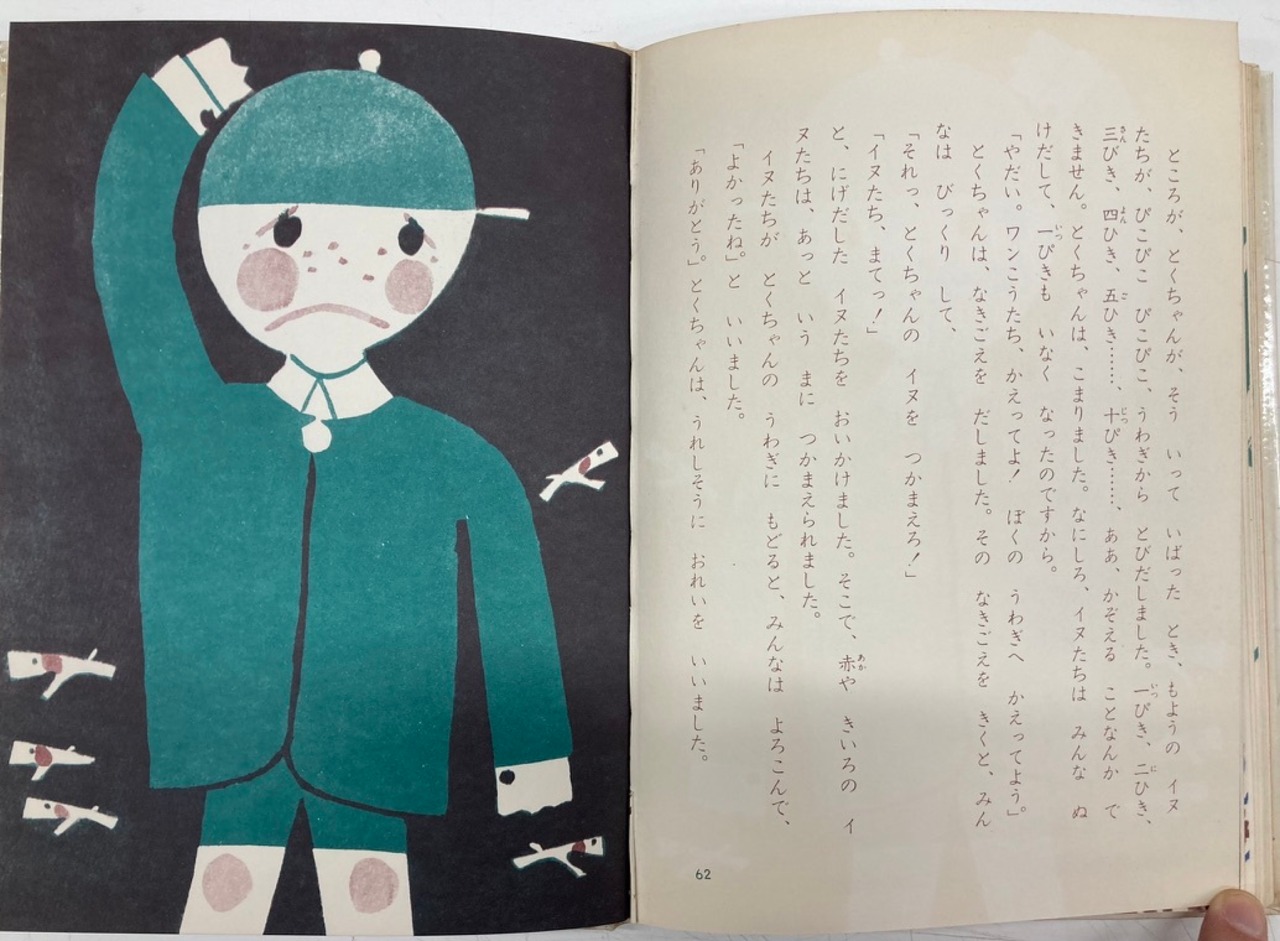 ところが、とくちゃんが、そう いって いばった とき、もようの イヌ
たちが、ぴこぴこ ぴこぴこ、うわぎから とびだしました。一ぴき、二ひき、
三びき、四ひき、五ひき……、十ぴき……、ああ、かぞえる ことなんか で
きません。とくちゃんは、こまりました。なにしろ、イヌたちは みんな ぬ
けだして、一ぴきも いなく なったのですから。
「やだい。ワンこうたち、かえってよ! ぼくの うわぎへ かえってよう。」
とくちゃんは、なきごえを だしました。その なきごえを きくと、みん
なは びっくり して、
「それっ、とくちゃんの イヌを つかまえろ!」
「イヌたち、まてっ!」
と、にげだした イヌたちを おいかけました。そこで、赤や きいろの イ
ヌたちは、あっと いう まに つかまえられました。
イヌたちが とくちゃんの うわぎに もどると、みんなは よろこんで、
「よかったね。」と いいました。
「ありがとう。」とくちゃんは、うれしそうに おれいを いいました。
62